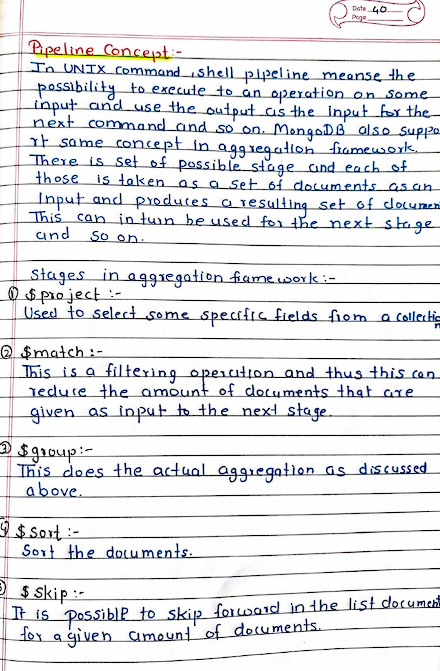 Date 40
Page
Pipeline Concept:-
In UNIX command, shell pipeline meanse the
possibility to execute to an operation on some
input and use the output as the input for the
next command and so on. MongoDB also suppo
rt same concept in aggregation framework.
There is set of possible stage and each of
those is taken as a set of documents as an
input and produces a resulting set of documen
This can in turn be used for the next stage
and so on.
Stages in aggregation framework:-
① $project :-
Used to select some specific fields from a collectio
n
② $match :-
This is a filtering operation and thus this can
reduce the amount of documents that are
given as input to the next stage.
③ $group:-
This does the actual aggregation as discussed
above.
④ $sort :-
Sort the documents.
$skip :-
It is possible to skip forward in the list document
for a given amount of documents.